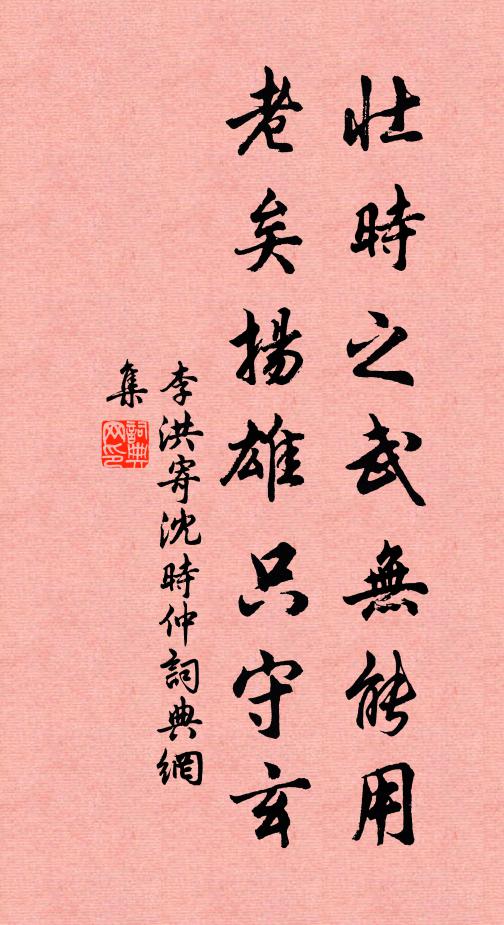 壯時之武無能用
老矣揚雄只守玄
李洪寄沈時仲詞典網
集
詞典网印